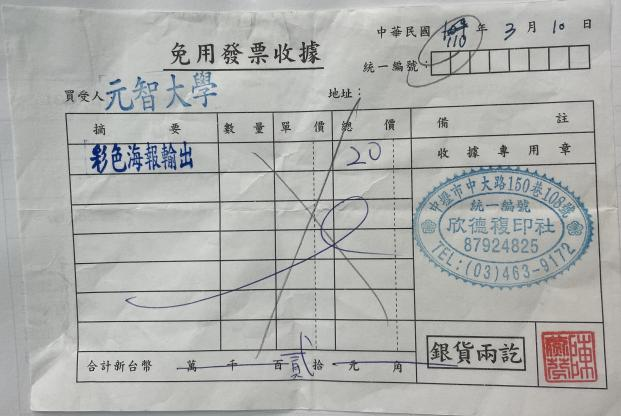 中華民國 110 年 3 月 10 日
免用發票收據
統一編號：
買受人 元智大學 地址：
摘要 數量 單價 總價 備註
彩色海報輸出 20 收據專用章
中壢市中大路150巷108號
統一編號
欣德複印社
87924825
TEL:(03)463-9172
銀貨兩訖
合計新台幣 萬 千 百 貳 拾 元 角